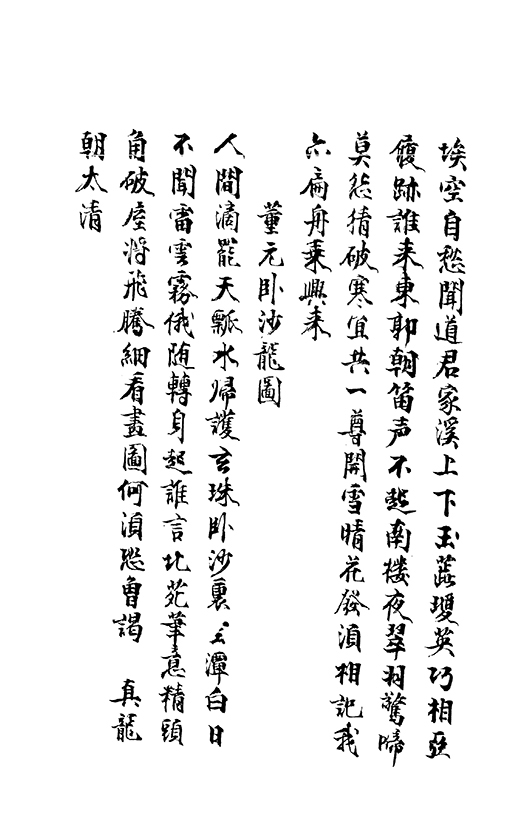 埃空自愁聞道君家溪上下玉蕋瓊英巧相亞
履跡誰来東郭朝笛声不起南楼夜翠羽驚啼
莫愁猜破寒宜共一尊開雪晴花發須相記我
六扁舟乗興来
董元卧沙龍圖
人間滴罷天瓢水歸護玄珠卧沙裏玄潭白日
不聞雷雲霧俄随轉身起誰言北苑筆意精頭
角破崖将飛騰細看畫圖何須恐曽謁 真龍
朝太清